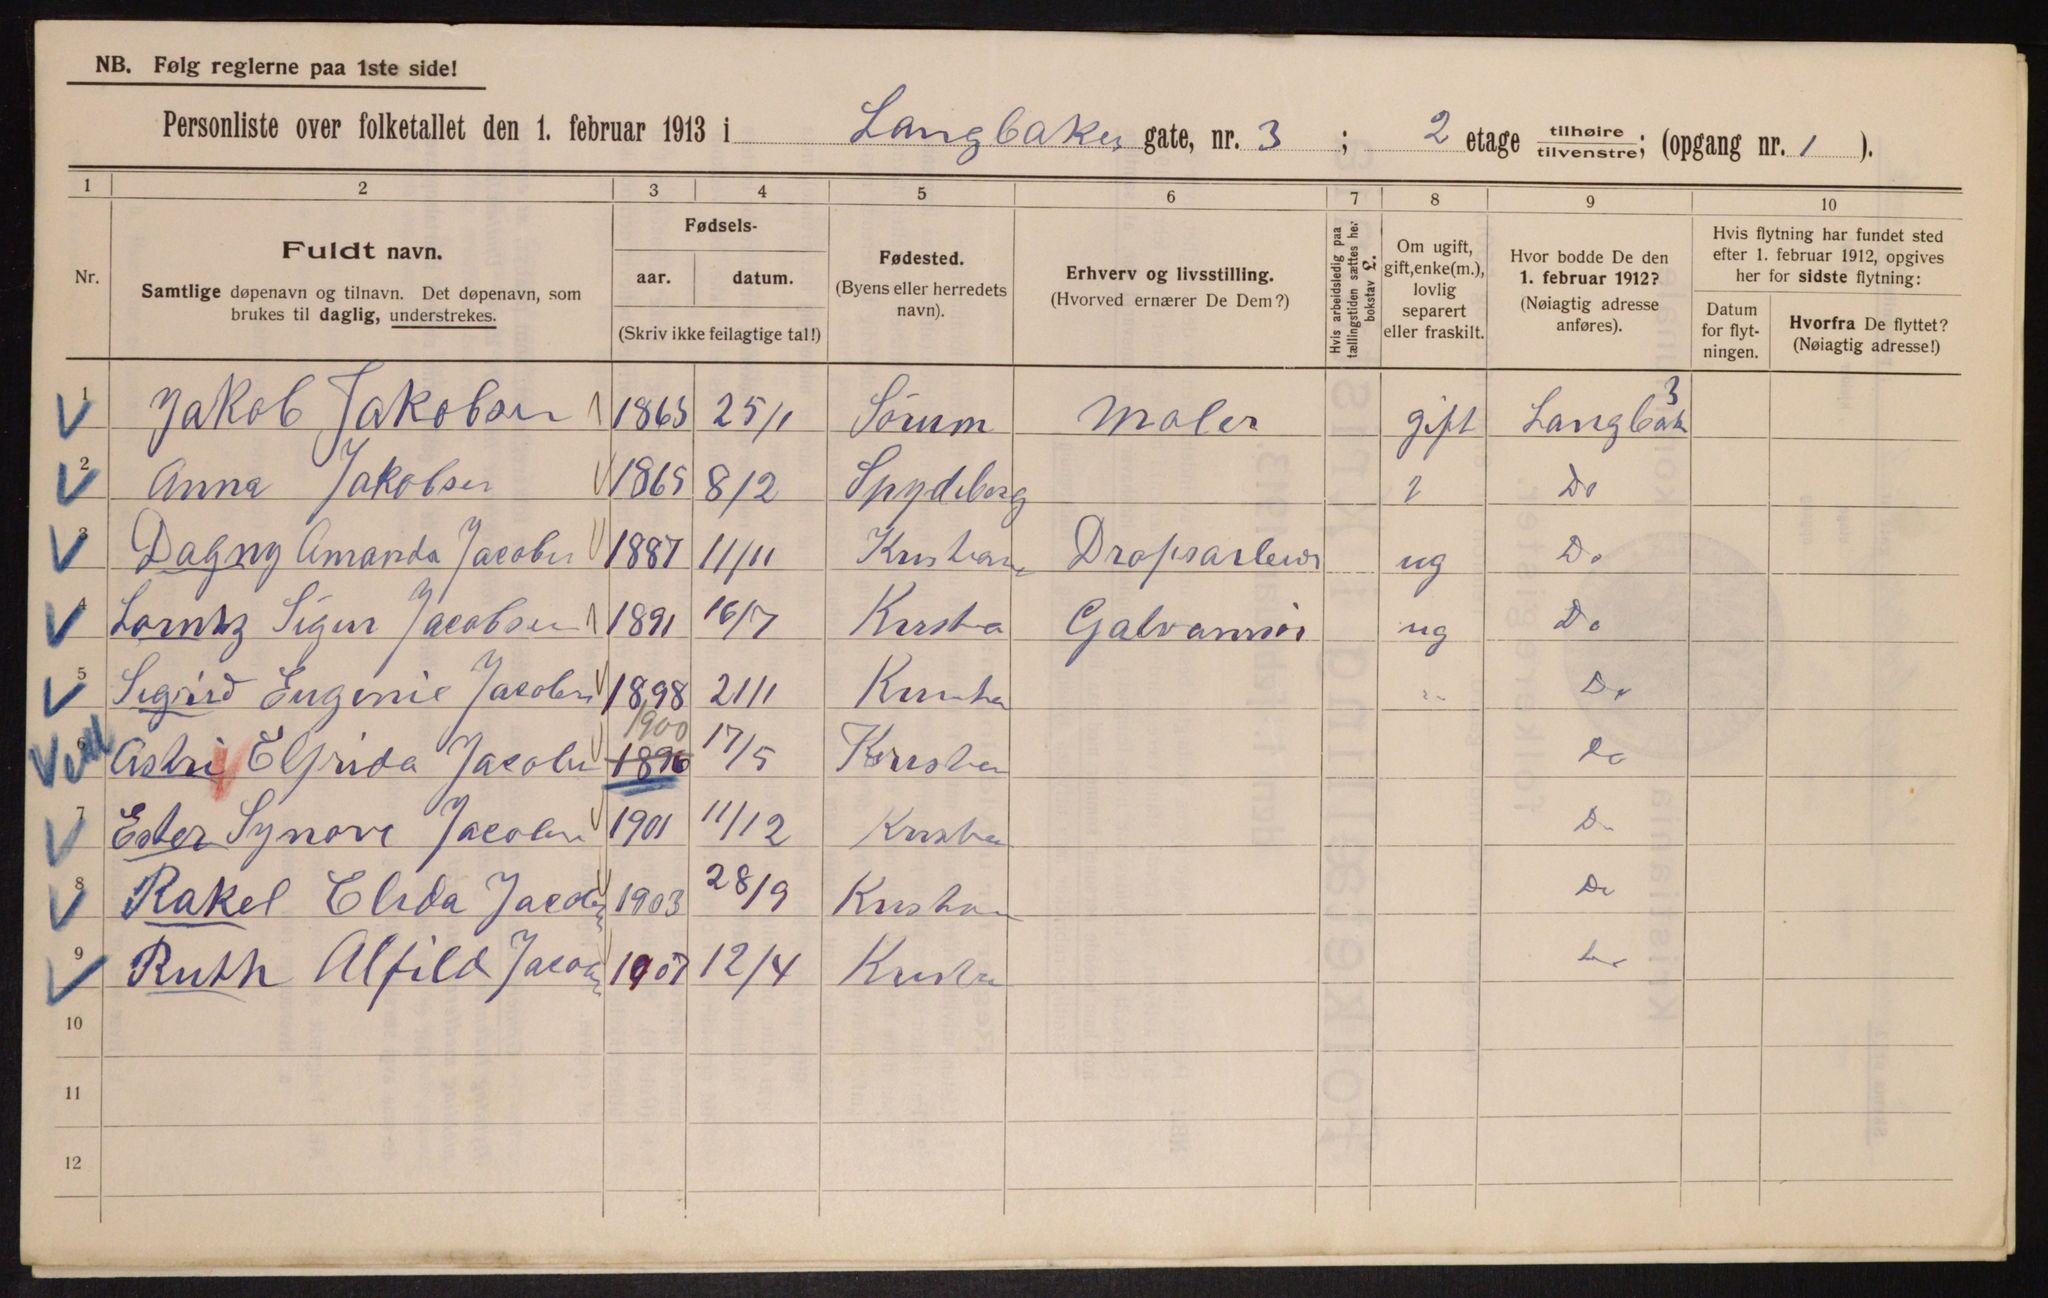 NB. Følg reglerne paa 1ste side!
Personliste over folketallet den 1. februar 1913 i Langbakes gate, nr. 3 ; 2 etage tilhøire tilvenstre; (opgang nr. 1 ).
1 2 3 4 5 6 7 8 9 10
Nr.
Fuldt navn.
Samtlige døpenavn og tilnavn. Det døpenavn, som
brukes til daglig, understrekes.
Fødsels-
aar. datum.
(Skriv ikke feilagtige tal!)
Fødested.
(Byens eller herredets
navn).
Erhverv og livsstilling.
(Hvorved ernærer De Dem?)
Hvis arbeidsledig paa
tællingstiden sættes her
bokstav L.
Om ugift,
gift, enke(m.),
lovlig
separert
eller fraskilt.
Hvor bodde De den
1. februar 1912?
(Nøiagtig adresse
anføres).
Hvis flytning har fundet sted
efter 1. februar 1912, opgives
her for sidste flytning:
Datum
for flyt-
ningen.
Hvorfra De flyttet?
(Nøiagtig adresse!)
1 Jakob Jakobsen 1865 25/1 Sørum Maler gift Langbak 3
2 Anna Jakobsen 1865 8/2 Spydeberg Do
3 Dagny Amanda Jacobsen 1887 11/11 Kristiania Dropsarbeid ug Do
4 Lorntz Sigur Jacobsen 1891 16/7 Kristia Galvanisør ug Do
5 Sigrid Eugenie Jacobsen 1898 21/1 Kristia " Do
6 Astri Elfrida Jacobsen 1896 1900 17/5 Kristian Do
7 Ester Synøve Jacobsen 1901 11/12 Kristian Do
8 Rakel Elida Jacobsen 1903 28/9 Kristian Do
9 Ruth Alfild Jacobsen 1907 12/4 Kristia Do
10
11
12